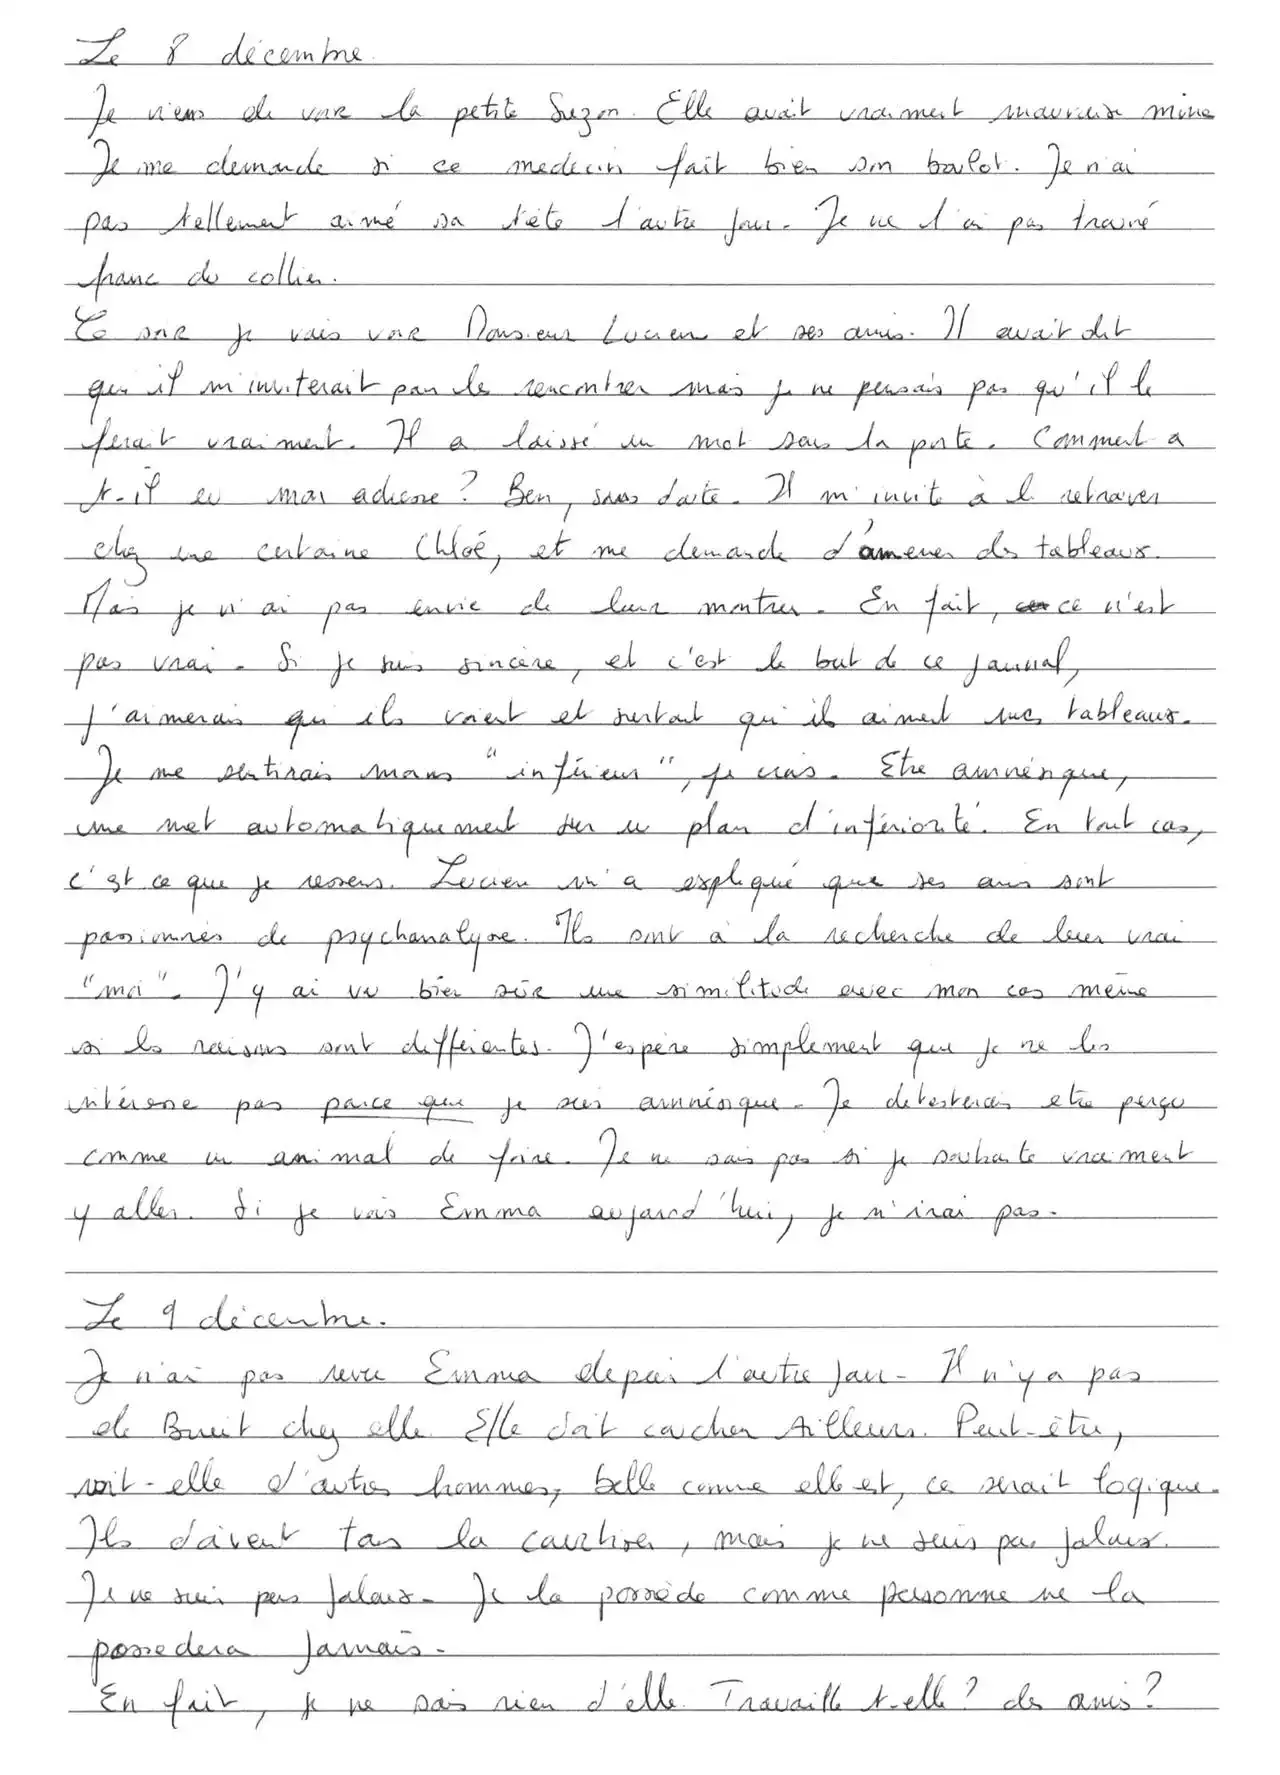 Le 8 décembre.
Je viens de voir la petite Suzon. Elle avait vraiment mauvaise mine
Je me demande si ce medecin fait bien son boulot. Je n'ai
pas tellement aimé sa tête l'autre jour. Je ne l'ai pas trouvé
franc du collier.
Ce soir je vais voir Monsieur Lucien et ses amis. Il avait dit
qu'il m'inviterait pour les rencontrer mais je ne pensais pas qu'il le
ferait vraiment. Il a laissé un mot sous la porte. Comment a
t-il eu mon adresse? Ben, sans doute. Il m'invite à le retrouver
chez une certaine Chloé, et me demande d'amener des tableaux.
Mais je n'ai pas envie de leur montrer. En fait, ce n'est
pas vrai. Si je suis sincère, et c'est le but de ce journal,
j'aimerais qu'ils voient et surtout qu'ils aiment mes tableaux.
Je me sentirais moins "inférieur", je crois. Etre amnésique,
me met automatiquement sur un plan d'infériorité. En tout cas,
c'est ce que je ressens. Lucien m'a expliqué que ses amis sont
passionnés de psychanalyse. Ils sont à la recherche de leur vrai
"moi". J'y ai vu bien sûr une similitude avec mon cas même
si les raisons sont différentes. J'espère simplement que je ne les
intéresse pas parce que je suis amnésique. Je detesterais etre perçu
comme un animal de foire. Je ne sais pas si je souhaite vraiment
y aller. Si je vois Emma aujourd'hui, je n'irai pas.
Le 9 décembre.
Je n'ai pas revu Emma depuis l'autre jour. Il n'y a pas
de Bruit chez elle. Elle doit coucher Ailleurs. Peut-être,
voit-elle d'autres hommes, belle comme elle est, ce serait logique.
Ils doivent tous la courtiser, mais je ne suis pas jaloux.
Je ne suis pas jaloux. Je la possède comme personne ne la
possedera jamais.
En fait, je ne sais rien d'elle. Travaille t-elle? des amis?